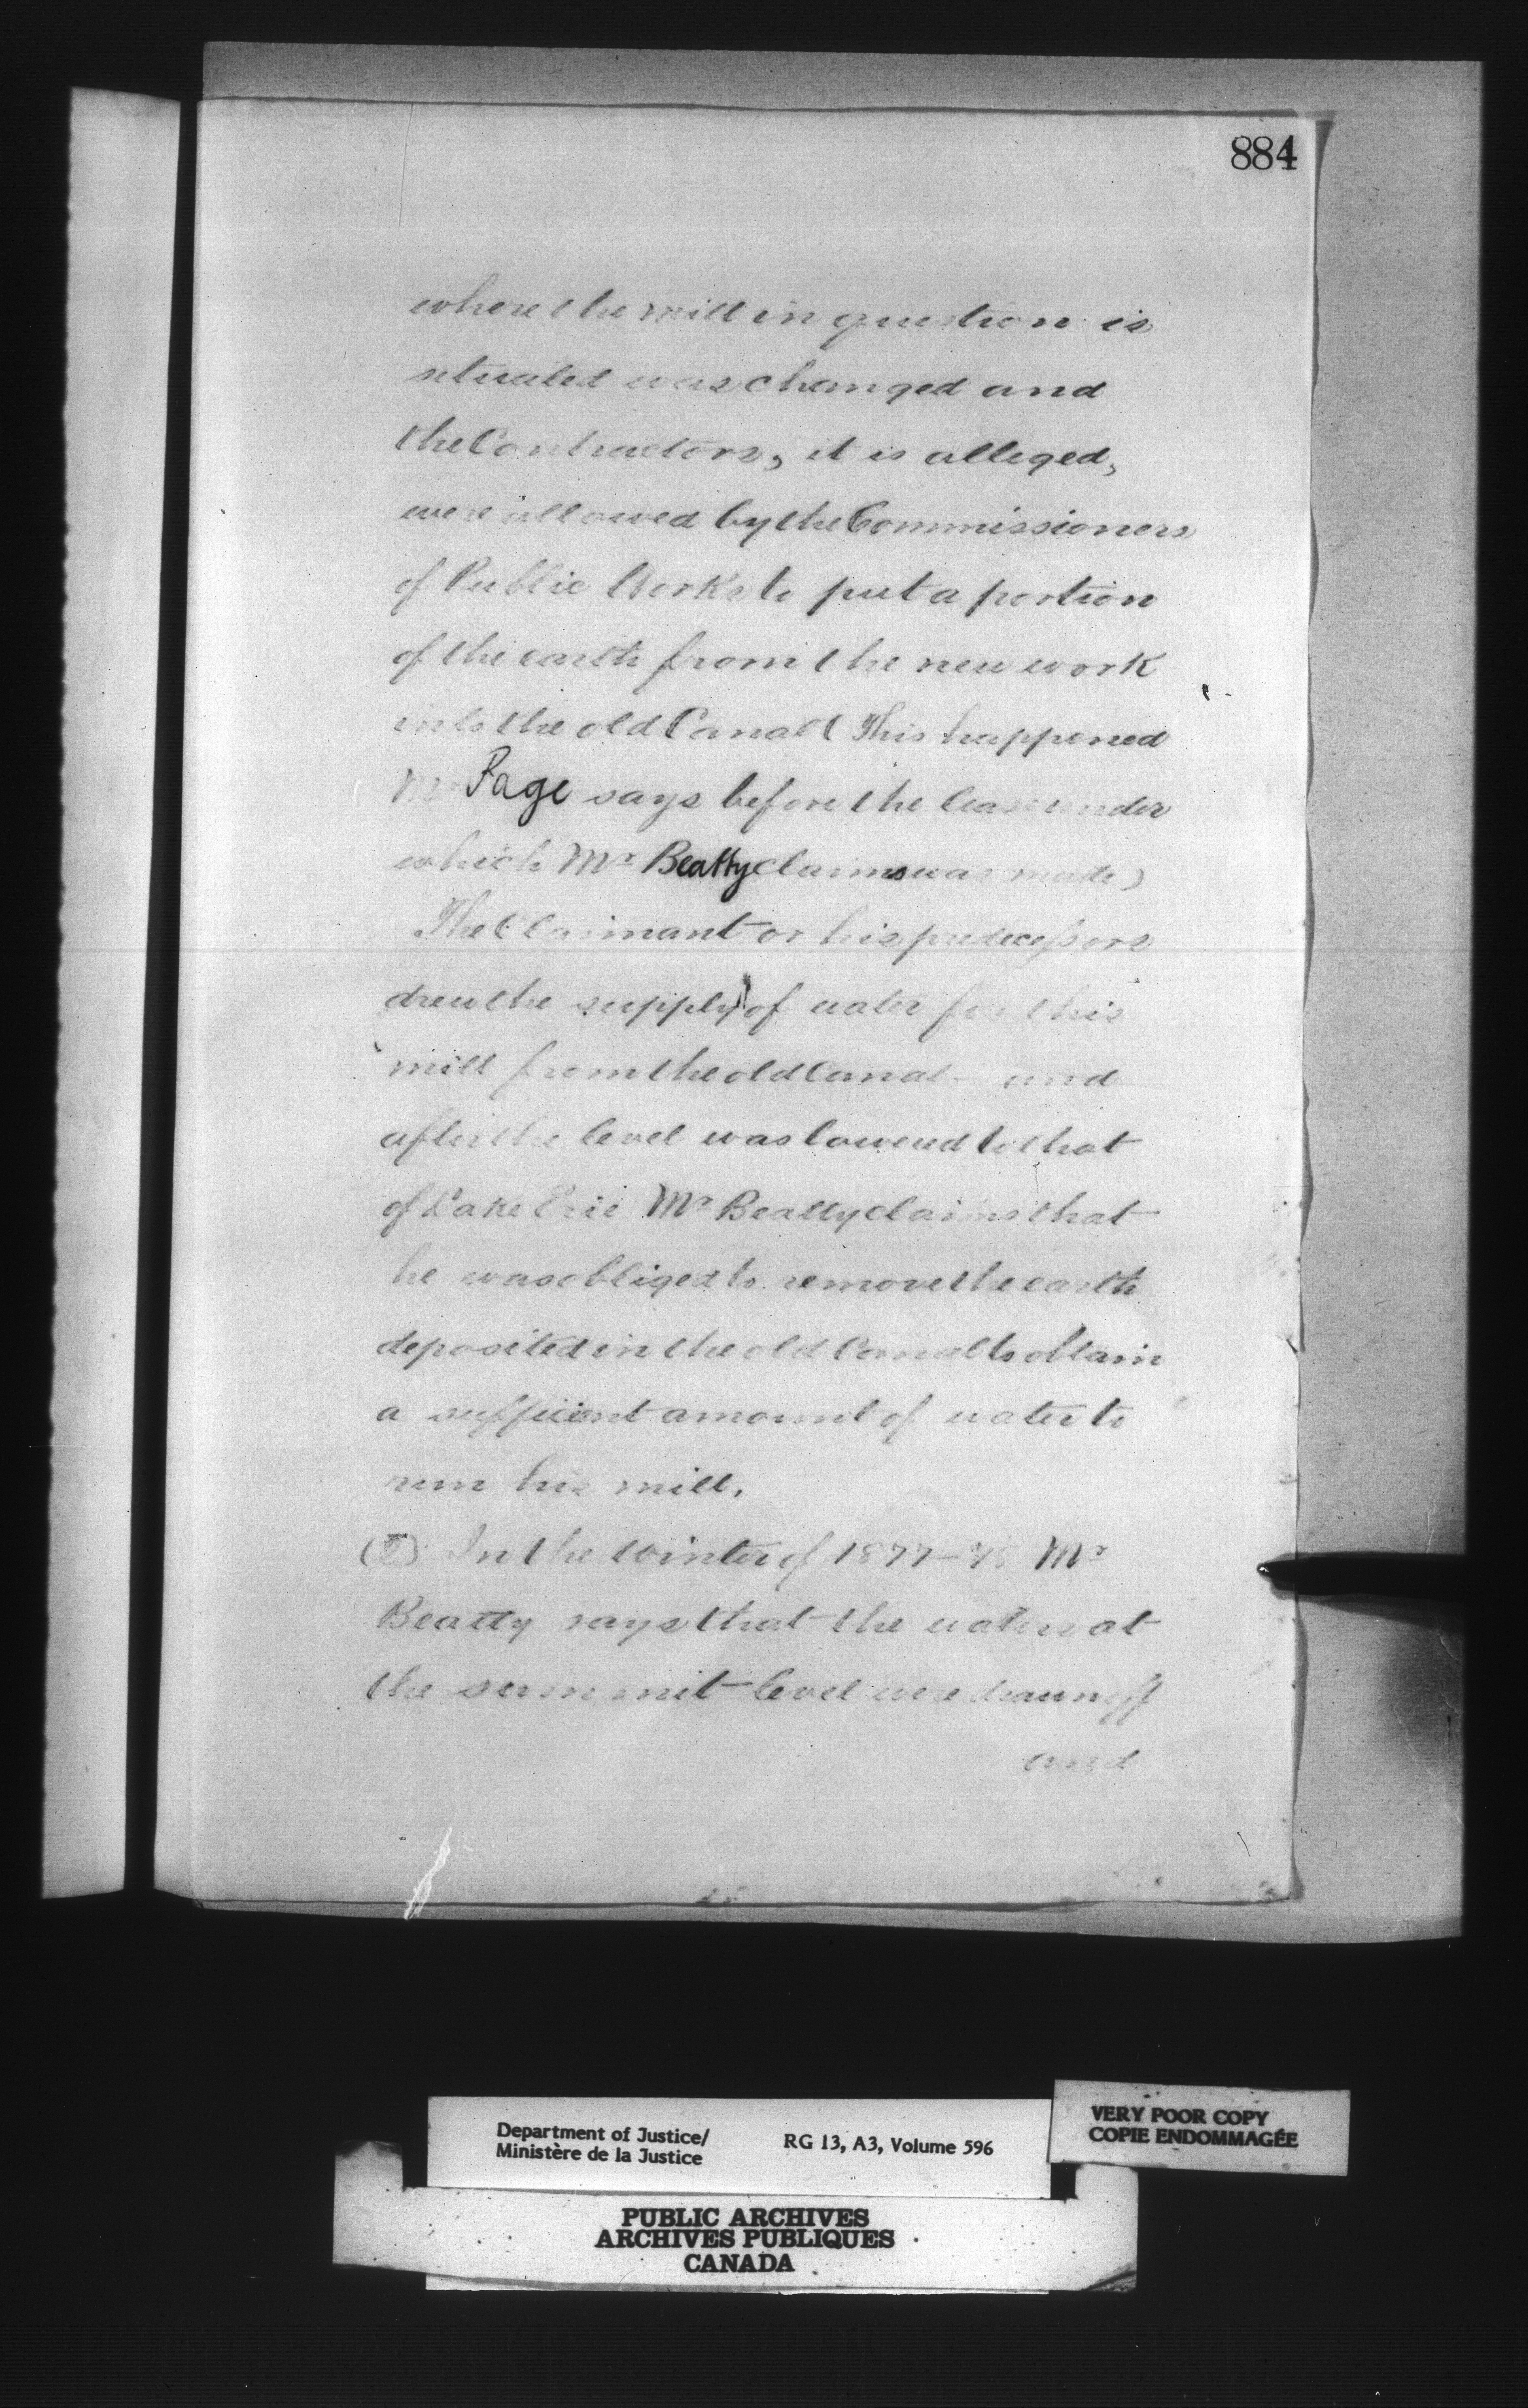 884
where the mill in question is
situated was changed and
the Contractors, it is alleged,
were allowed by the Commissioners
of Public Works to put a portion
of the earth from the new work
into the old Canal (This happened
Mr Page says before the lease under
which Mr Beatty claims was made)
The Claimant or his predecessors
drew the supply of water for this
mill from the old Canal - and
after the level was lowered to that
of Lake Erie Mr Beatty claims that
he was obliged to remove the earth
deposited in the old Canal to obtain
a sufficient amount of water to
run his mill.
In the Winter of 1877-78 Mr
Beatty says that the waters at
the summit level were drawn off
and
Department of Justice/
Ministère de la Justice
RG 13, A3, Volume 596
VERY POOR COPY
COPIE ENDOMMAGÉE
PUBLIC ARCHIVES
ARCHIVES PUBLIQUES
CANADA